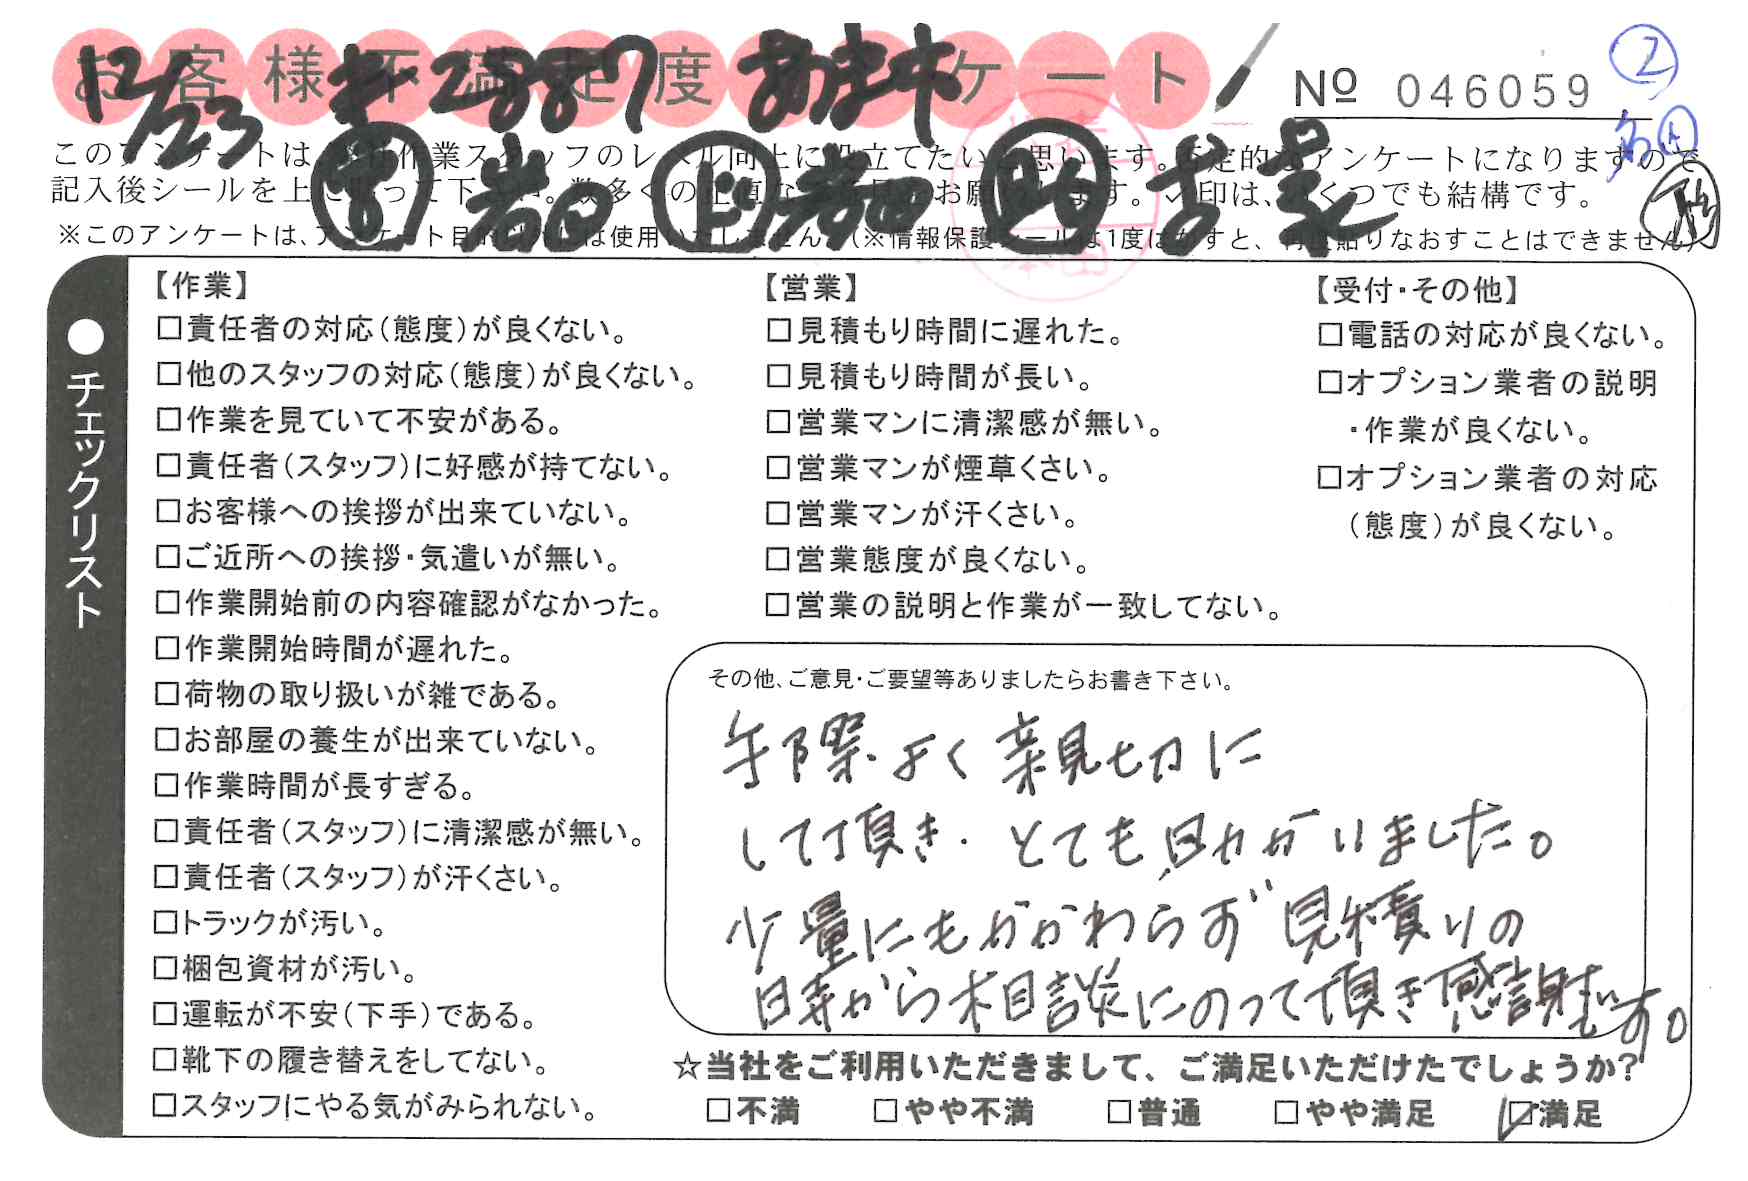 お客様不満足度アンケート
12/23 2887 あま市
No 046059
②
このアンケートは、弊社作業スタッフのレベル向上に役立てたいと思います。否定的なアンケートになりますので
記入後シールを上に貼って下さい。数多くの正直なご意見をお願いします。✓印は、いくつでも結構です。
※このアンケートは、アンケート目的以外には使用いたしません。(※情報保護シールは1度はがすと、再度貼りなおすことはできません)
●チェックリスト
【作業】
□責任者の対応(態度)が良くない。
□他のスタッフの対応(態度)が良くない。
□作業を見ていて不安がある。
□責任者(スタッフ)に好感が持てない。
□お客様への挨拶が出来ていない。
□ご近所への挨拶・気遣いが無い。
□作業開始前の内容確認がなかった。
□作業開始時間が遅れた。
□荷物の取り扱いが雑である。
□お部屋の養生が出来ていない。
□作業時間が長すぎる。
□責任者(スタッフ)に清潔感が無い。
□責任者(スタッフ)が汗くさい。
□トラックが汚い。
□梱包資材が汚い。
□運転が不安(下手)である。
□靴下の履き替えをしてない。
□スタッフにやる気がみられない。
【営業】
□見積もり時間に遅れた。
□見積もり時間が長い。
□営業マンに清潔感が無い。
□営業マンが煙草くさい。
□営業マンが汗くさい。
□営業態度が良くない。
□営業の説明と作業が一致してない。
【受付・その他】
□電話の対応が良くない。
□オプション業者の説明
・作業が良くない。
□オプション業者の対応
(態度)が良くない。
その他、ご意見・ご要望等ありましたらお書き下さい。
手際よく親切に
して頂き、とても助かりました。
少量にもかかわらず見積りの
時から相談にのって頂き感謝です。
☆当社をご利用いただきまして、ご満足いただけたでしょうか?
□不満 □やや不満 □普通 □やや満足 ☑満足